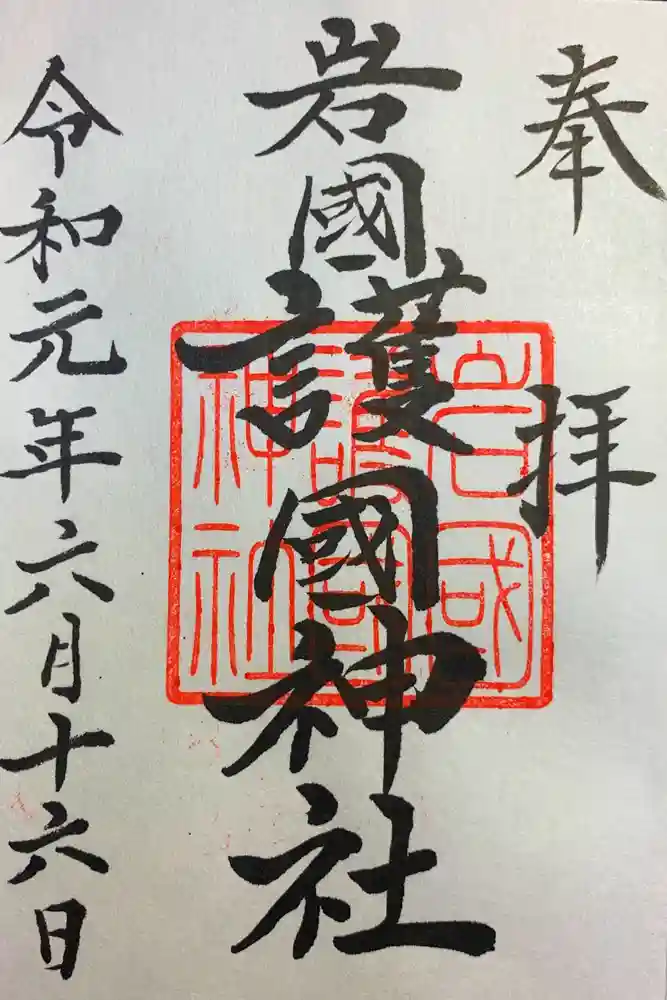 奉拝
岩國護國神社
岩國護國神社
令和元年六月十六日